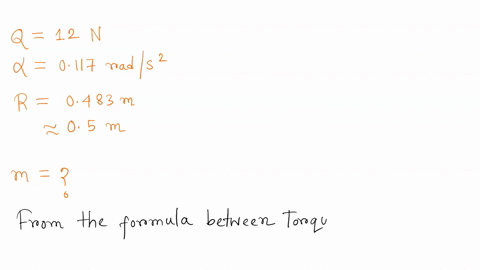 Q = 12 N
α = 0.117 rad/s²
R = 0.483 m
≈ 0.5 m
m = ?
From the formula between Torqu